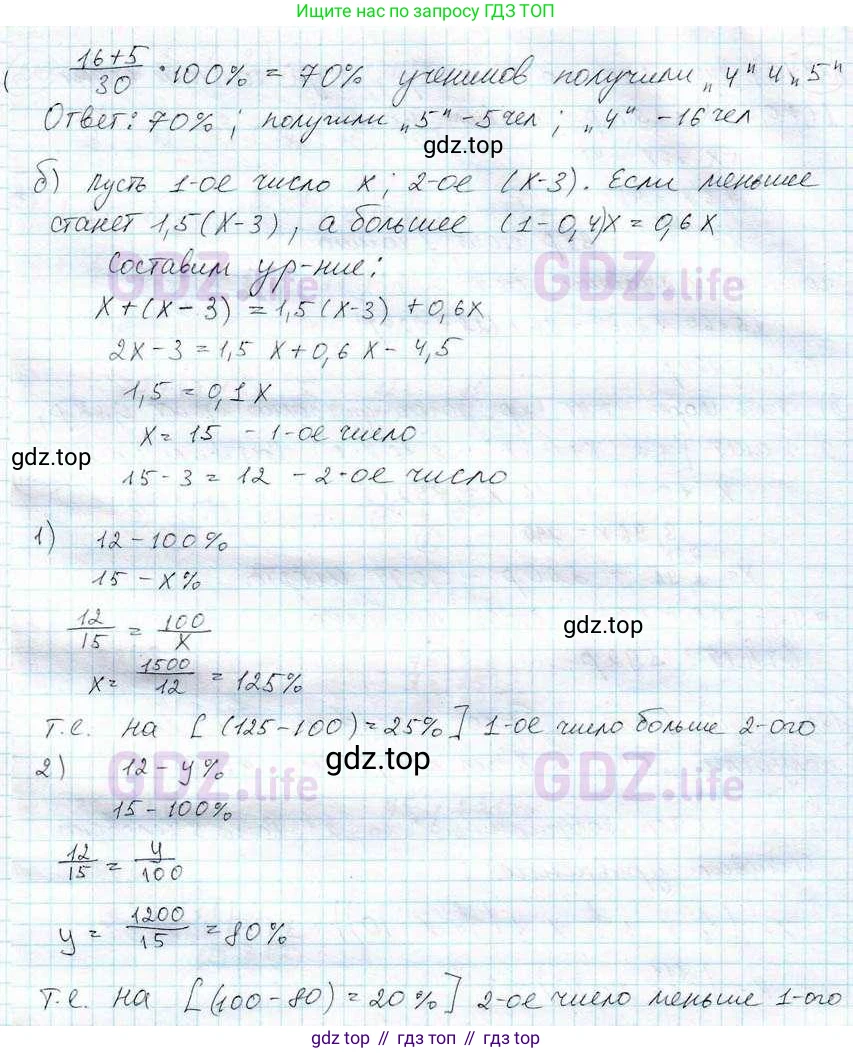 Ищите нас по запросу ГДЗ ТОП
(16+5)/30 · 100% = 70% учеников получили „4" и „5"
Ответ: 70%; получили „5" - 5 чел; „4" - 16 чел
gdz.top
б) Пусть 1-ое число x; 2-ое (x-3). Если меньшее
станет 1,5(x-3), а большее (1-0,4)x = 0,6x
Составим ур-ние:
GDZ.life GDZ.life
x+(x-3) = 1,5(x-3) + 0,6x
2x-3 = 1,5 x + 0,6 x - 4,5
1,5 = 0,1x
x = 15 - 1-ое число
gdz.top
15 - 3 = 12 - 2-ое число
1) 12 - 100%
15 - x%
12/15 = 100/x
gdz.top
x = 1500/12 = 125%
т.е. на [(125-100) = 25%] 1-ое число больше 2-ого
gdz.top
2) 12 - y%
GDZ.life GDZ.life
15 - 100%
12/15 = y/100
y = 1200/15 = 80%
т.е. на [(100-80) = 20%] 2-ое число меньше 1-ого
gdz.top // гдз топ // gdz.top